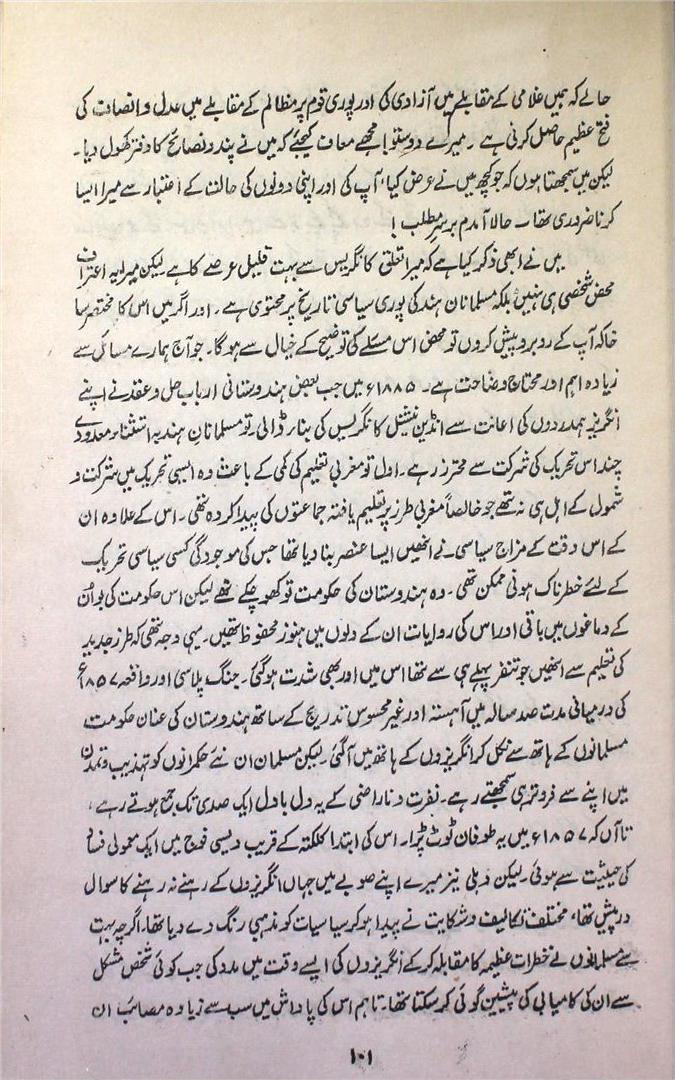 حالے کہ ہمیں غلامی کے مقابلے میں آزادی کی اور پوری قوم پر مظالم کے مقابلے میں عدل و انصاف کی
فتح عظیم حاصل کرنی ہے ۔ میرے دوستو! مجھے معاف کیجئے کہ میں نے پند و نصائح کا دفتر کھول دیا ۔
لیکن میں سمجھتا ہوں کہ جو کچھ میں نے عرض کیا، آپ کی اور اپنی دونوں کی حالت کے اعتبار سے میرا ایسا
کرنا ضروری تھا ۔ حالا آمدم بر سر مطلب !
میں نے ابھی ذکر کیا ہے کہ میرا تعلق کانگریس سے بہت قلیل عرصے کا ہے لیکن میرا یہ اعتراف
محض شخصی ہی نہیں بلکہ مسلمانان ہند کی پوری سیاسی تاریخ پر محتوی ہے ۔ اور اگر میں اس کا مختصر سا
خاکہ آپ کے روبرو پیش کروں تو محض اس مسئلے کی توضیح کے خیال سے ہوگا ۔ جو آج ہمارے مسائل سے
زیادہ اہم اور محتاج وضاحت ہے ۔ ۱۸۸۵ء میں جب بعض ہندوستانی ارباب حل و عقد نے اپنے
انگریز ہمدردوں کی اعانت سے انڈین نیشنل کانگریس کی بناء ڈالی ۔ تو مسلمانان ہند بہ استثناء معدودے
چند اس تحریک کی شرکت سے محترز رہے ۔ اول تو مغربی تعلیم کی کمی کے باعث وہ ایسی تحریک میں شرکت و
شمول کے اہل ہی نہ تھے جو خالصاً مغربی طرز پر تعلیم یافتہ جماعتوں کی پیدا کردہ تھی ۔ اس کے علاوہ ان
کے اس وقت کے مزاج سیاسی نے انھیں ایسا عنصر بنا دیا تھا جس کی موجودگی کسی سیاسی تحریک
کے لئے خطرناک ہونی ممکن تھی ۔ وہ ہندوستان کی حکومت تو کھو چکے تھے لیکن اس حکومت کی بو اُن
کے دماغوں میں باقی اور اس کی روایات ان کے دلوں میں ہنوز محفوظ تھیں ۔ یہی وجہ تھی کہ طرز جدید
کی تعلیم سے انھیں جو تنفر پہلے ہی سے تھا اس میں اور بھی شدت ہوگئی ۔ جنگ پلاسی اور واقعہ ۱۸۵۷ء
کی درمیانی مدت صد سالہ میں آہستہ اور غیر محسوس تدریج کے ساتھ ہندوستان کی عنان حکومت
مسلمانوں کے ہاتھ سے نکل کر انگریزوں کے ہاتھ میں آگئی ۔ لیکن مسلمان ان نئے حکمرانوں کو تہذیب و تمدن
میں اپنے سے فروتر ہی سمجھتے رہے ۔ نفرت و ناراضی کے یہ دل بادل ایک صدی تک جمع ہوتے رہے ،
تا آں کہ ۱۸۵۷ء میں یہ طوفان ٹوٹ پڑا ۔ اس کی ابتدا کلکتہ کے قریب دیسی فوج میں ایک معمولی فساد
کی حیثیت سے ہوئی ۔ لیکن دہلی نیز میرے اپنے صوبے میں جہاں انگریزوں کے رہنے نہ رہنے کا سوال
درپیش تھا، مختلف تکالیف و شکایت نے پیدا ہو کر سیاسیات کو مذہبی رنگ دے دیا تھا ۔ اگرچہ بہت
سے مسلمانوں نے خطرات عظیمہ کا مقابلہ کر کے انگریزوں کی ایسے وقت میں مدد کی جب کوئی شخص مشکل
سے ان کی کامیابی کی پیشین گوئی کر سکتا تھا ۔ تاہم اس کی پاداش میں سب سے زیادہ مصائب ان
۱۰۱